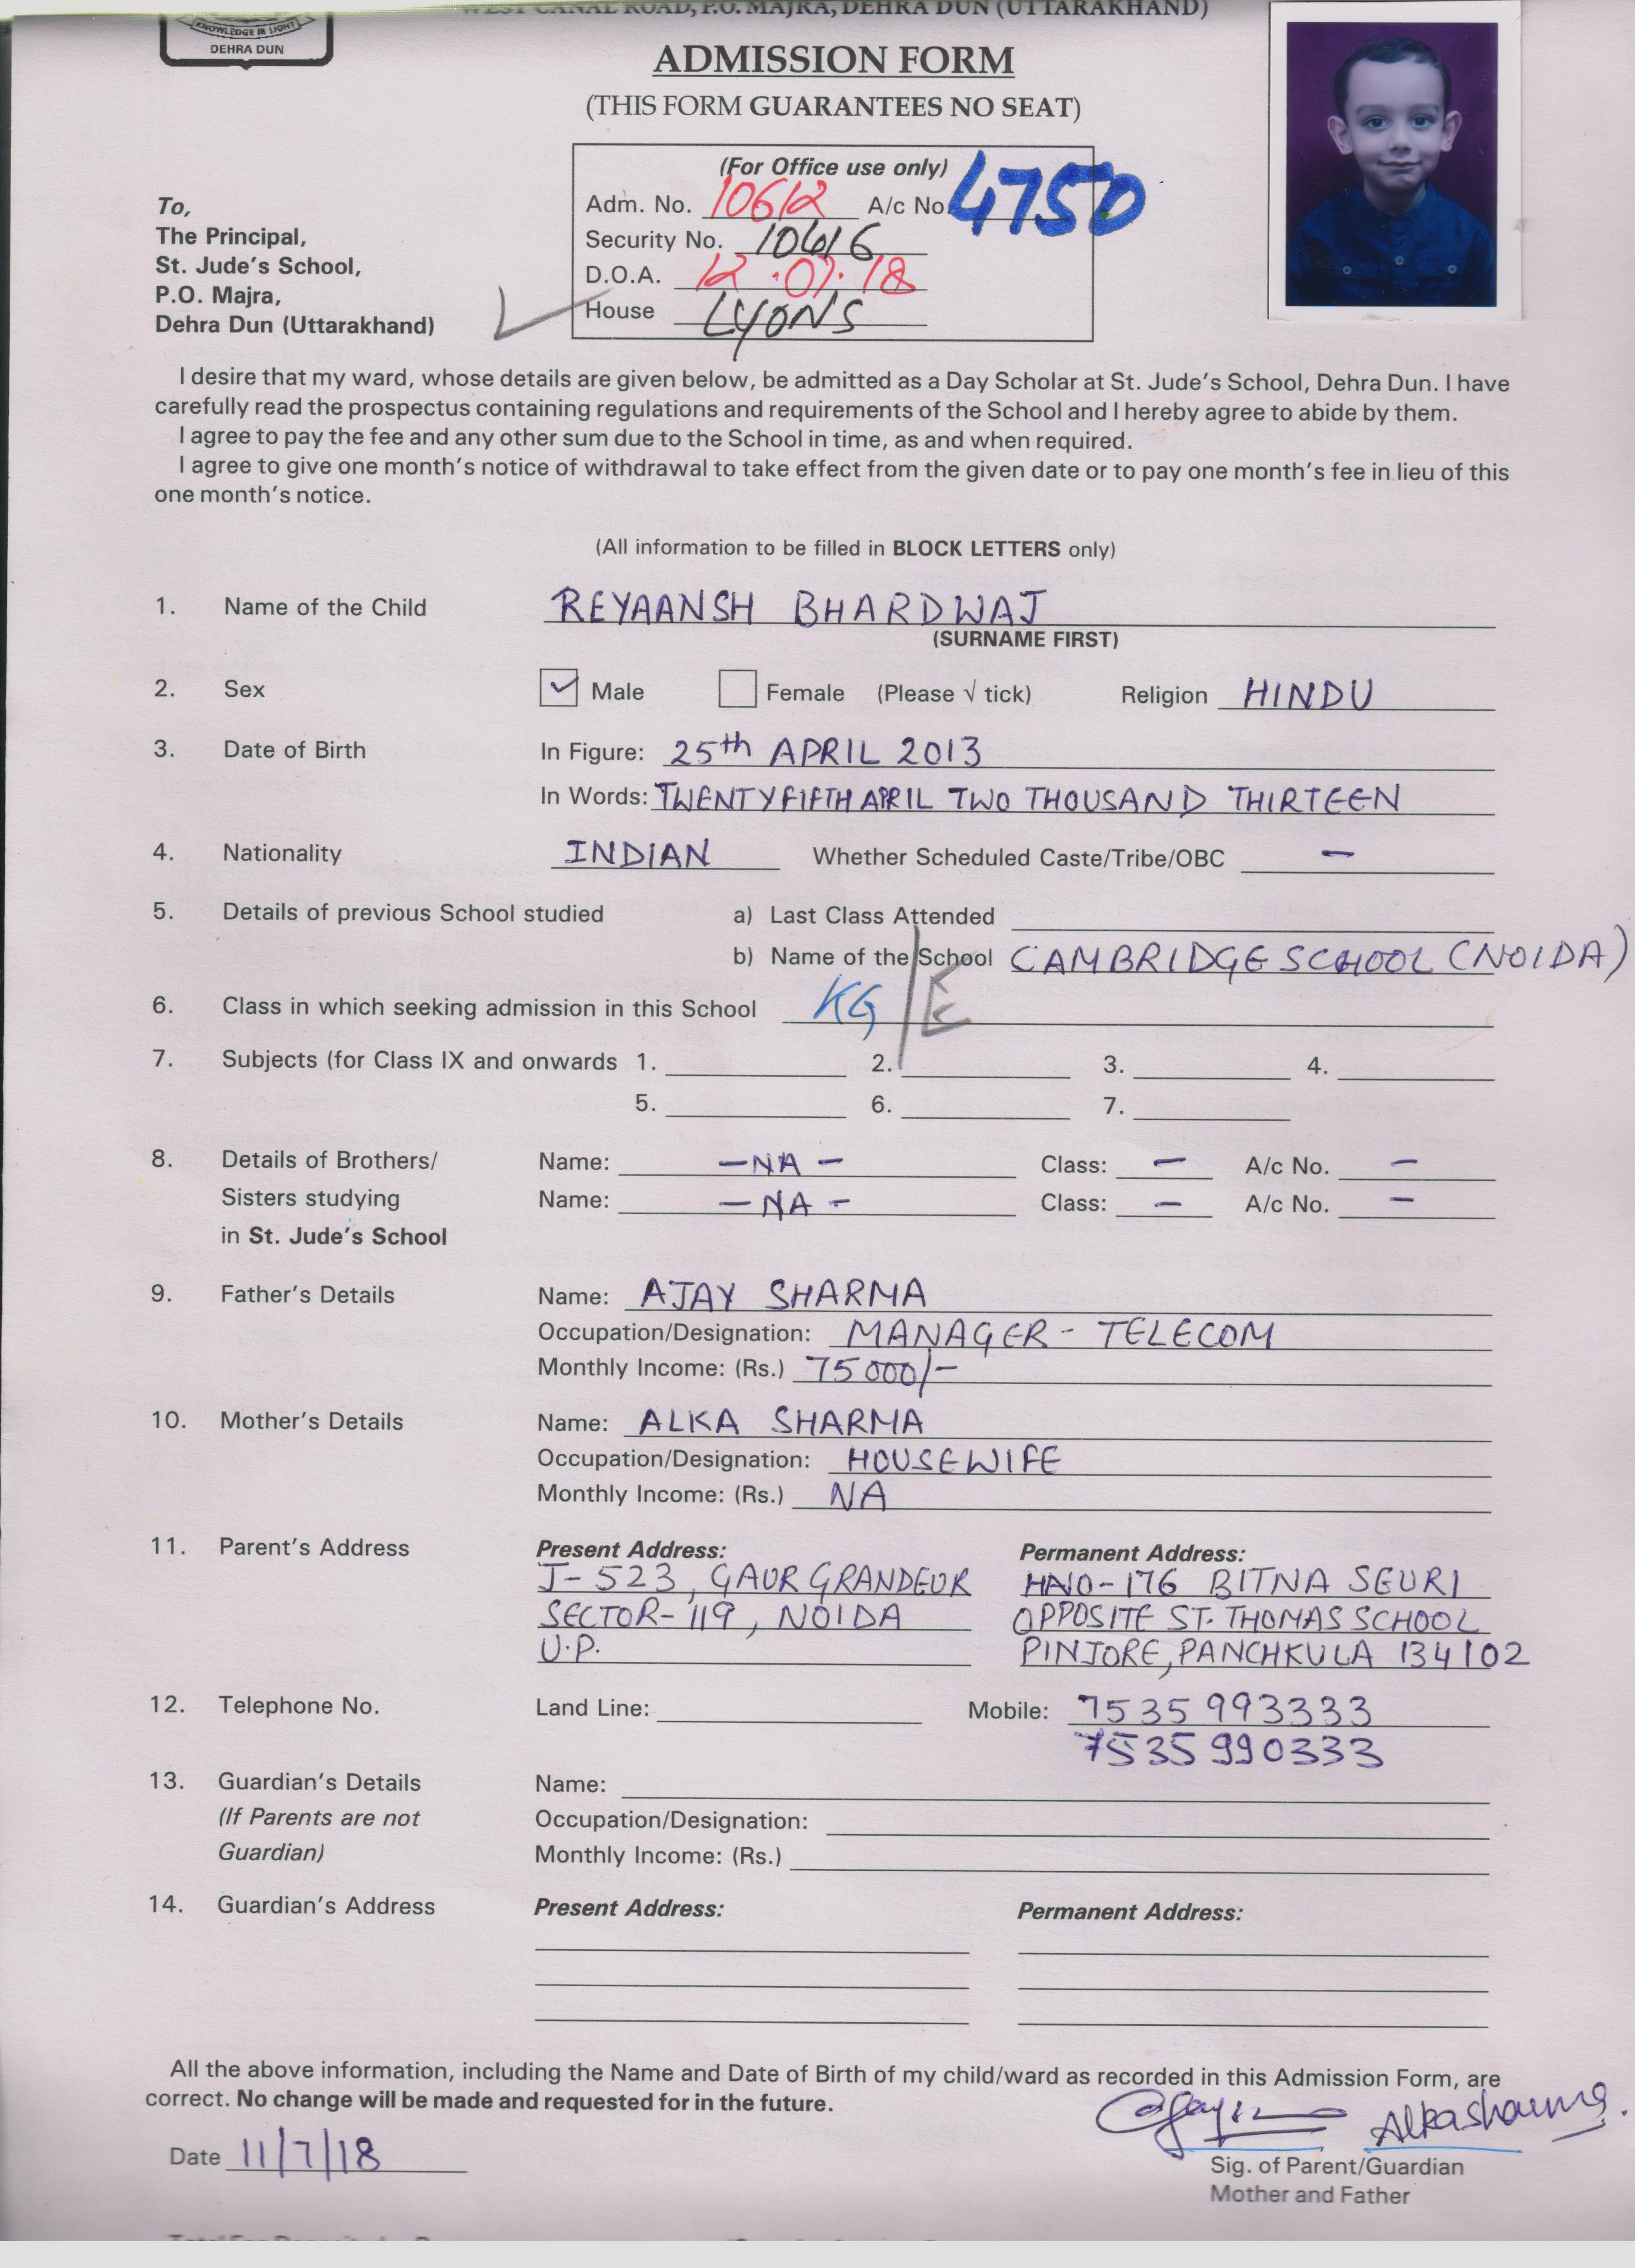 WEST CANAL ROAD, P.O. MAJRA, DEHRA DUN (UTTARAKHAND)
KNOWLEDGE IS LIGHT
DEHRA DUN
ADMISSION FORM
(THIS FORM GUARANTEES NO SEAT)
(For Office use only)
Adm. No. 10612 A/c No. 4750
Security No. 10616
D.O.A. 12.07.18
House LYONS
To,
The Principal,
St. Jude's School,
P.O. Majra,
Dehra Dun (Uttarakhand)
I desire that my ward, whose details are given below, be admitted as a Day Scholar at St. Jude's School, Dehra Dun. I have
carefully read the prospectus containing regulations and requirements of the School and I hereby agree to abide by them.
I agree to pay the fee and any other sum due to the School in time, as and when required.
I agree to give one month's notice of withdrawal to take effect from the given date or to pay one month's fee in lieu of this
one month's notice.
(All information to be filled in BLOCK LETTERS only)
1. Name of the Child REYAANSH BHARDWAJ
(SURNAME FIRST)
2. Sex ✓ Male Female (Please √ tick) Religion HINDU
3. Date of Birth In Figure: 25th APRIL 2013
In Words: TWENTYFIFTH APRIL TWO THOUSAND THIRTEEN
4. Nationality INDIAN Whether Scheduled Caste/Tribe/OBC –
5. Details of previous School studied a) Last Class Attended
b) Name of the School CAMBRIDGE SCHOOL (NOIDA)
6. Class in which seeking admission in this School KG/E
7. Subjects (for Class IX and onwards 1. 2. 3. 4.
5. 6. 7.
8. Details of Brothers/ Name: –NA– Class: – A/c No. –
Sisters studying Name: –NA– Class: – A/c No. –
in St. Jude's School
9. Father's Details Name: AJAY SHARMA
Occupation/Designation: MANAGER - TELECOM
Monthly Income: (Rs.) 75000/-
10. Mother's Details Name: ALKA SHARMA
Occupation/Designation: HOUSEWIFE
Monthly Income: (Rs.) NA
11. Parent's Address Present Address: Permanent Address:
J-523, GAUR GRANDEUR HNO-176 BITNA SEURI
SECTOR-119, NOIDA OPPOSITE ST. THOMAS SCHOOL
U.P. PINJORE, PANCHKULA 134102
12. Telephone No. Land Line: Mobile: 7535993333
7535990333
13. Guardian's Details Name:
(If Parents are not Occupation/Designation:
Guardian) Monthly Income: (Rs.)
14. Guardian's Address Present Address: Permanent Address:
All the above information, including the Name and Date of Birth of my child/ward as recorded in this Admission Form, are
correct. No change will be made and requested for in the future.
Alkasharma.
Date 11/7/18
Sig. of Parent/Guardian
Mother and Father